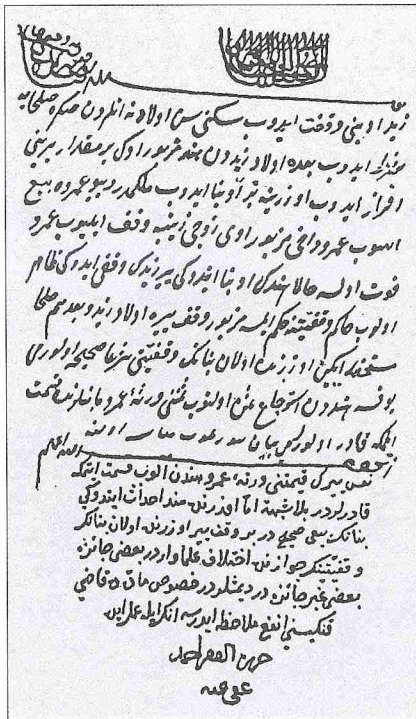 زيد اوينى وقف ايدوب سكنىسن اولادنه انلردن صكره صلحايه
شرط ايدوب بعده اولاد زيددن هند مزبور اوك بر مقدار يرينى
افراز ايدوب اوزرينه بر او بنا ايدوب ملكمدر ديو عمروه بيع
ايدوب عمرو داخى مزبور اوى زوجى زينبه وقف ايليوب عمرو
فوت اولسه حالا هندك او بنا ايتدوكى ير زيدك وقف ايتدوكى ظاهر
اولوب حاكم وقفيتنه حكم ايلسه مزبور وقف يره اولاد زيد وبعدهم صلحا
مستحقلر ايكن اوزرنده اولان بنانك وقفيتى شرعا صحيحه اولورمى
يوخسه هنددن استرجاع ثمن اولنوب ثمنى ورثۀ عمرو بينلرنده قسمت
ايتمكه قادر اولورلرمى بيان بيوريلوب
الله اعلم
نفس يرك قيمتنى ورثۀ عمرو هنددن الوب قسمت ايتمكه
قادرلردر بلا شبهه اما اوزرنده هند احداث ايتدوكى
بنانك بيعى صحيحدر بر وقف ير اوزرنده اولان بنانك
وقفيتنك جوازنده اختلاف علما واردر بعضى جائزدر
بعضى غير جائزدر ديمشلر در خصوص مادهده قاضى
قنكيسنى انفع ملاحظه ايدرسه انكله عمل ايده
حرره الفقير احمد
عفى عنه